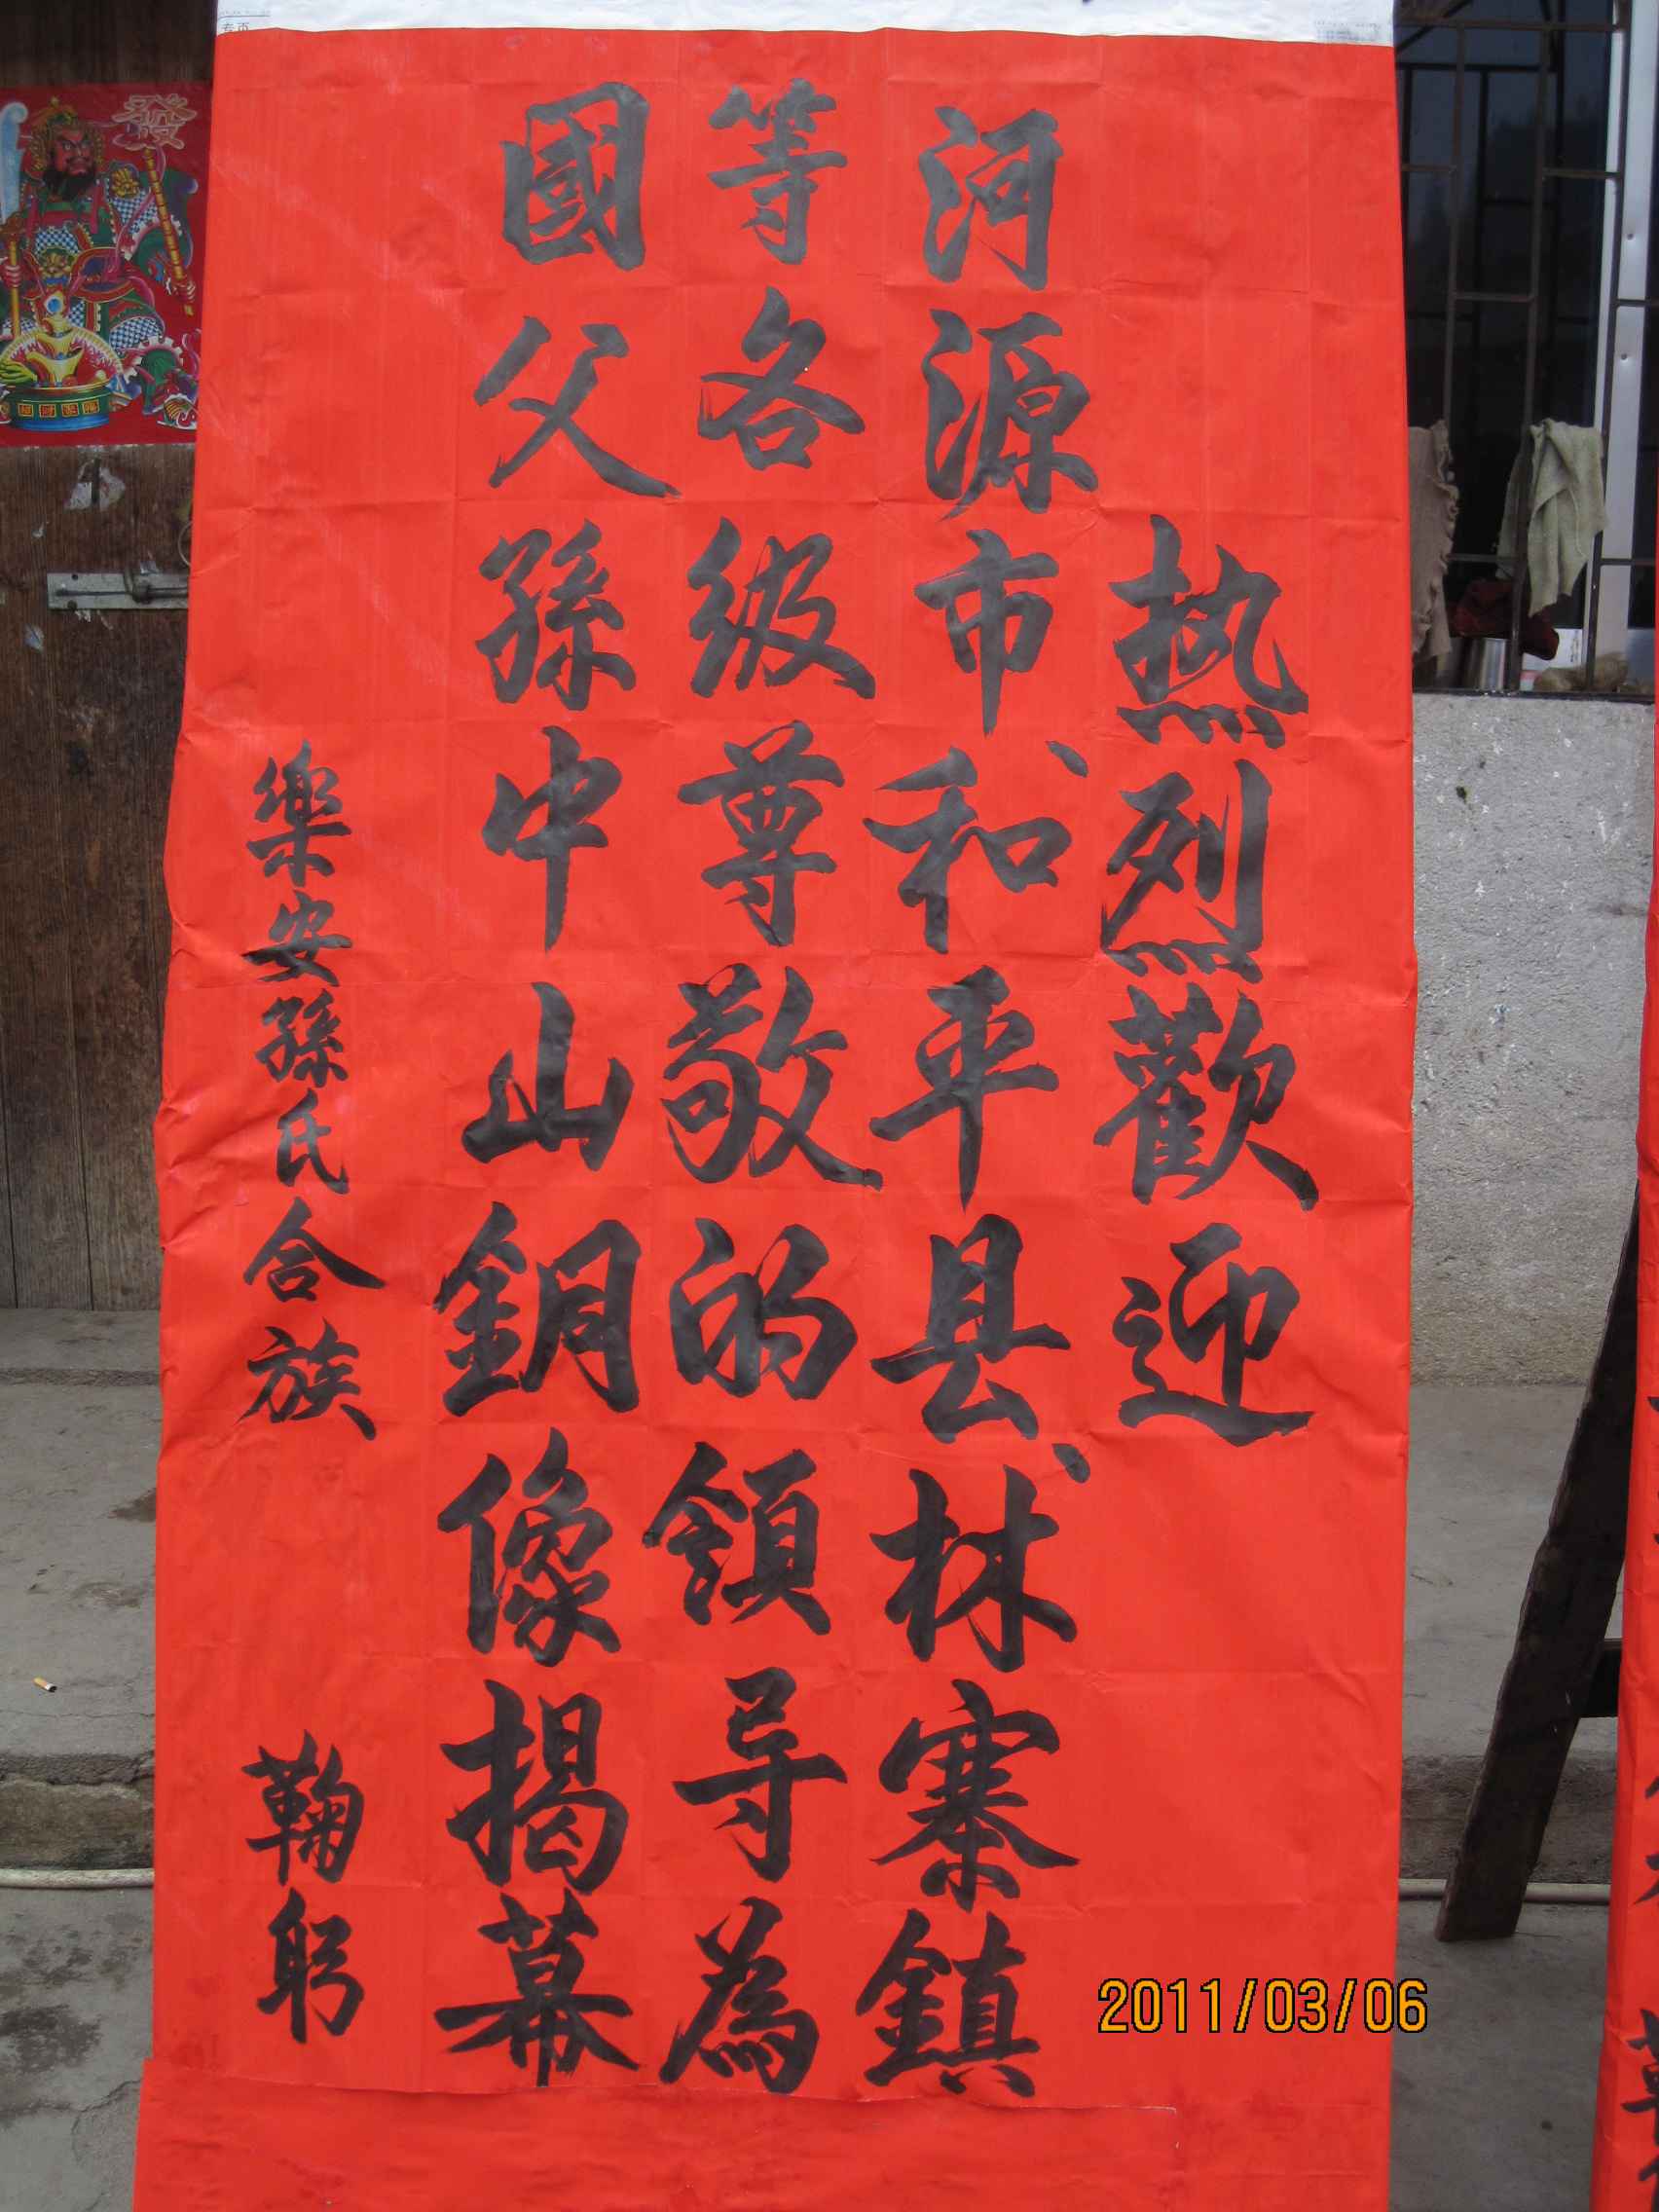 热烈歡迎
河源市、和平县、林寨鎮
等各级尊敬的領导為
國父孫中山銅像揭幕
樂安孫氏合族 鞠躬
2011/03/06
發
专页